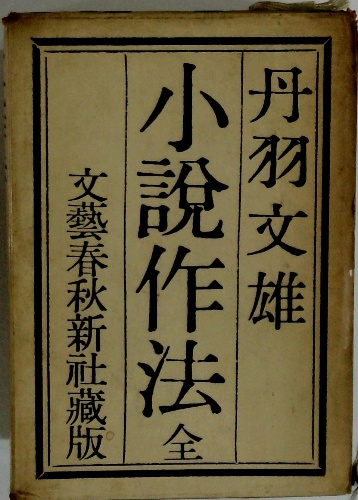 丹羽文雄
小說作法 全
文藝春秋新社藏版